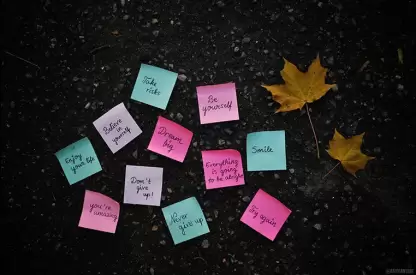 Take
risks
Be
yourself
Believe
in
yourself
Dream
big
Smile
Enjoy
your life
Everything
is going
to be alright
Don't
give
up!
you're
amazing
Never
give up
Try again